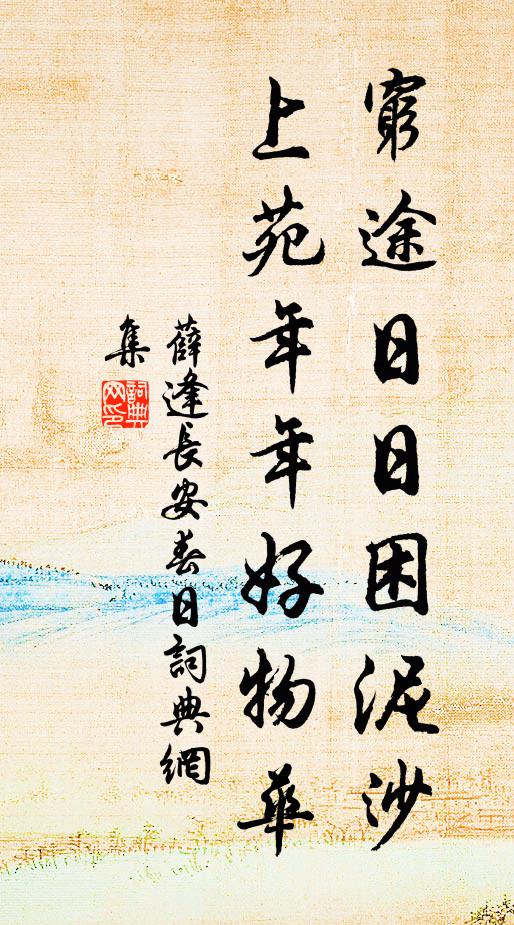 窮途日日困泥沙
上苑年年好物華
薛逢長安春日詞典網
集
詞典
网印